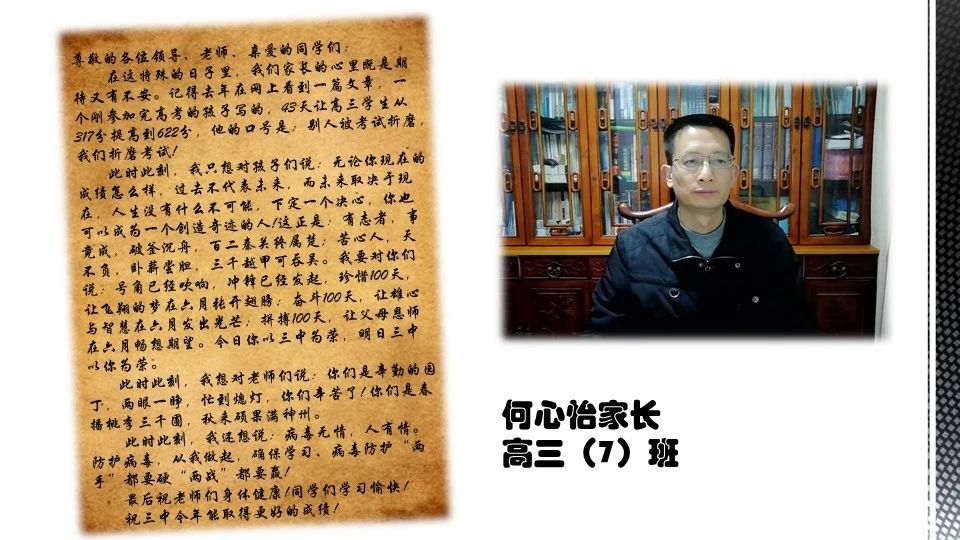 尊敬的各位领导、老师、亲爱的同学们：
在这特殊的日子里，我们家长的心里既是期
待又有不安。记得去年在网上看到一篇文章，一
个刚参加完高考的孩子写的，43天让高三学生从
317分提高到622分，他的口号是：别人被考试折磨，
我们折磨考试！
此时此刻，我只想对孩子们说：无论你现在的
成绩怎么样，过去不代表未来，而未来取决于现
在，人生没有什么不可能，下定一个决心，你也
可以成为一个创造奇迹的人！这正是：有志者，事
竟成，破釜沉舟，百二秦关终属楚；苦心人，天
不负，卧薪尝胆，三千越甲可吞吴。我要对你们
说：号角已经吹响，冲锋已经发起，珍惜100天，
让飞翔的梦在六月张开翅膀；奋斗100天，让雄心
与智慧在六月发出光芒；拼搏100天，让父母恩师
在六月畅想期望。今日你以三中为荣，明日三中
以你为荣。
此时此刻，我想对老师们说：你们是辛勤的园
丁，两眼一睁，忙到熄灯，你们辛苦了！你们是春
播桃李三千圃，秋来硕果满神州。
此时此刻，我还想说：病毒无情，人有情。
防护病毒，从我做起，确保学习、病毒防护“两
手”都要硬“两战”都要赢！
最后祝老师们身体健康！同学们学习愉快！
祝三中今年能取得更好的成绩！
何心怡家长
高三（7）班